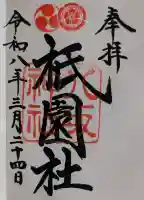 奉拝
祇園社
令和八年三月二十四日